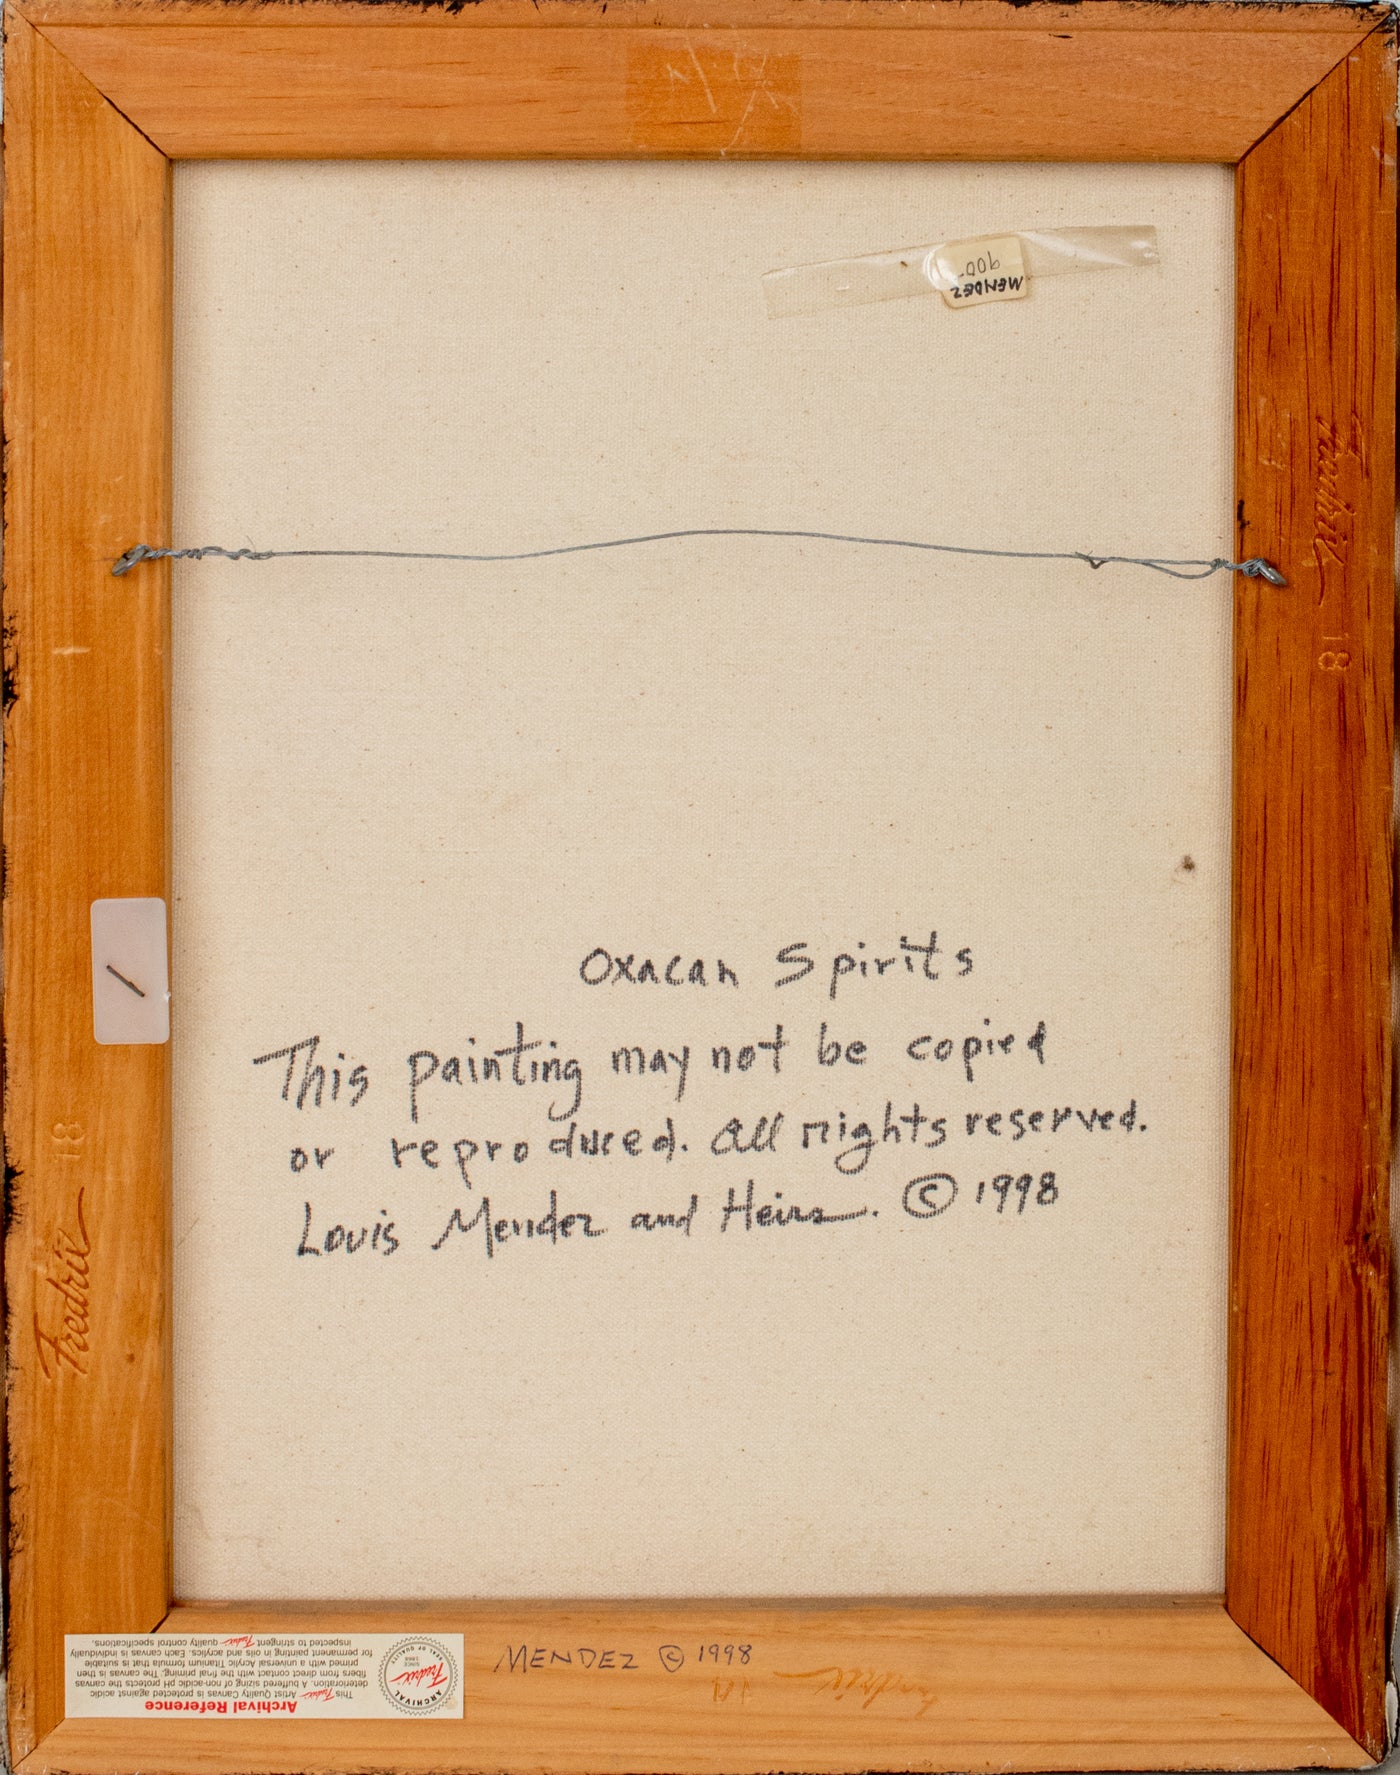 MENDEZ
900-
Fredrix
18
Oxacan Spirits
This painting may not be copied
or reproduced. All rights reserved.
Louis Mendez and Heirs. © 1998
18
Fredrix
MENDEZ © 1998
Fredrix
14
Archival Reference
This Fredrix Artist Quality Canvas is protected against acidic
deterioration. A buffered sizing of non-acidic pH protects the canvas
fibers from direct contact with the final priming. The canvas is then
primed with a universal Acrylic Titanium formula that is suitable
for permanent painting in oils and acrylics. Each canvas is individually
inspected to stringent Fredrix quality control specifications.
ARCHIVAL
Fredrix
SINCE 1868
SEAL OF QUALITY